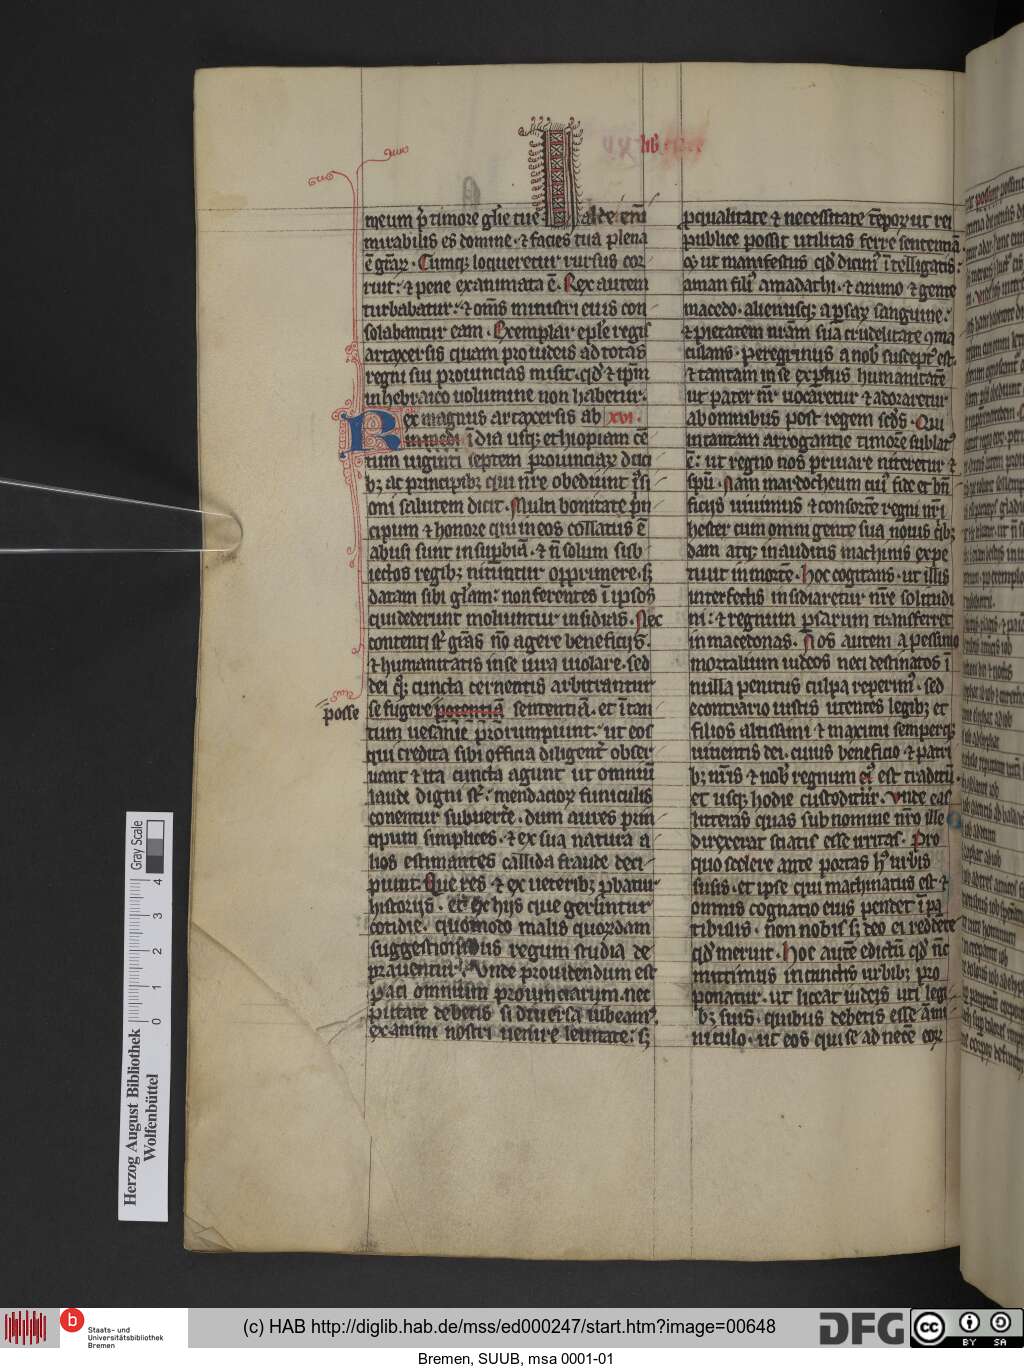 meum p̄ timore glīe tue Valde enī
mirabilis es domine · et facies tua plena
ē grār̄ · Cumq; loqueretur rursus cor
ruit : et pene exanimata ē. Rex autem
turbabatur : et om̄s ministri eius con
solabantur eam · Exemplar eplē regis
artaxersis quam pro iudeis ad totas
regni sui prouincias misit · qd̄ et ip̄m
in hebraico uolumine non habetur.
Rex magnus artaxersis ab xvi.
īdia usq; ethiopiam cē
tum uiginti septem prouinciar̄ duci
b; ac principib; qui nr̄e obediunt
oni salutem dicit · Multi bonitate p̄n
cipum et honore qui in eos collatus ē
abusi sunt in sup̄biā · et n̄ solum sub
iectos regib; nituntur opprimere · s;
datam sibi gl̄am : non ferentes ī ipsos
qui dederunt moliuntur insidias · Nec
contenti st̄ grās nō agere beneficijs ·
et humanitatis in se iura uiolare · sed
dei q̄; cuncta cernentis arbitrantur
posse
se fugere potentiā sententiā · et ī tan
tum uesanie prorumpunt · ut eos
qui credita sibi officia diligent̄ obser
uant et ita cuncta agunt ut omniū
laude digni st̄ : mendacior̄ funiculis
conentur subuert̄e · dum aures prin
cipum simplices · et ex sua natura a
lios estimantes callida fraude deci
piunt · Que res · et ex ueterib; p̄batur
historijs · et ex hijs que geruntur
cotidie · quomodo malis quor̄dam
suggestionibus regum studia de
prauentur · Unde prouidendum est
paci omnium prouinciarum · nec
putare debetis si diuersa iubeam9
ex animi nostri uenire leuitate : s;
lib̄
p qualitate et necessitate tēpor̄ ut rei
publice possit utilitas ferre sententiā
q; ut manifestius qd̄ dicim9 ītelligatis :
aman fili9 amadathi · et animo et gente
macedo · alienusq; a p̄sar̄ sanguine ·
et pietatem nr̄am sua crudelitate 9ma
culans · peregrinus a nob̄ suscept9 est.
et tantam in se exp̄tus humanitatē
ut pater nr̄ uocaretur et adoraretur
ab omnibus post regem sc̄ds · Qui
in tantam arrogantie timorē sublat9
ē : ut regno nos priuare niteretur et
sp̄u · Nam mardocheum cui9 fide et bn̄
ficijs uiuimus et consortē regni nr̄i
hester cum omni gente sua nouis q̄b;
dam atq; inauditis machinis expe
tiuit in mortē · Hoc cogitans · ut illis
interfectis insidiaretur nr̄e solitudi
ni : et regnum p̄sarum transferret
in macedonas · Nos autem a pessimo
mortalium iudeos neci destinatos ī
nulla penitus culpa reperim9 · sed
econtrario iustis utentes legib; et
filios altissimi et maximi semperq;
uiuentis dei · cuius beneficio et patri
b; nr̄is et nob̄ regnum ei9 est traditū ·
et usq; hodie custoditur · Unde eas
litteras quas sub nomine nr̄o ille
direxerat sciatis esse irritas · Pro
quo scelere ante portas h9 urbis
susis · et ipse qui machinatus est et
omnis cognatio eius pendet ī pa
tibulis · non nobis s; deo ei reddēte
qd̄ meruit · Hoc autē edictū qd̄ nc̄
mittimus in cunctis urbib; pro
ponatur · ut liceat iudeis uti legi
b; suis · quibus debetis esse āmi
niculo · ut eos qui se ad necē eor̄
Gray Scale
0 1 2 3 4
Herzog August Bibliothek
Wolfenbüttel
b Staats- und
Universitätsbibliothek
Bremen
(c) HAB http://diglib.hab.de/mss/ed000247/start.htm?image=00648
DFG
cc BY SA
Bremen, SUUB, msa 0001-01